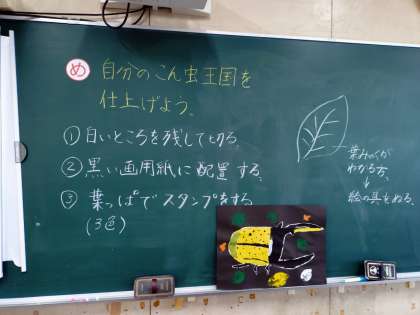 め 自分のこん虫王国を
仕上げよう。
① 白いところを残して切る。
② 黒い画用紙に配置する。
③ 葉っぱでスタンプをする。
(3色)
葉みゃくが
わかる方。
↓
絵の具をぬる。